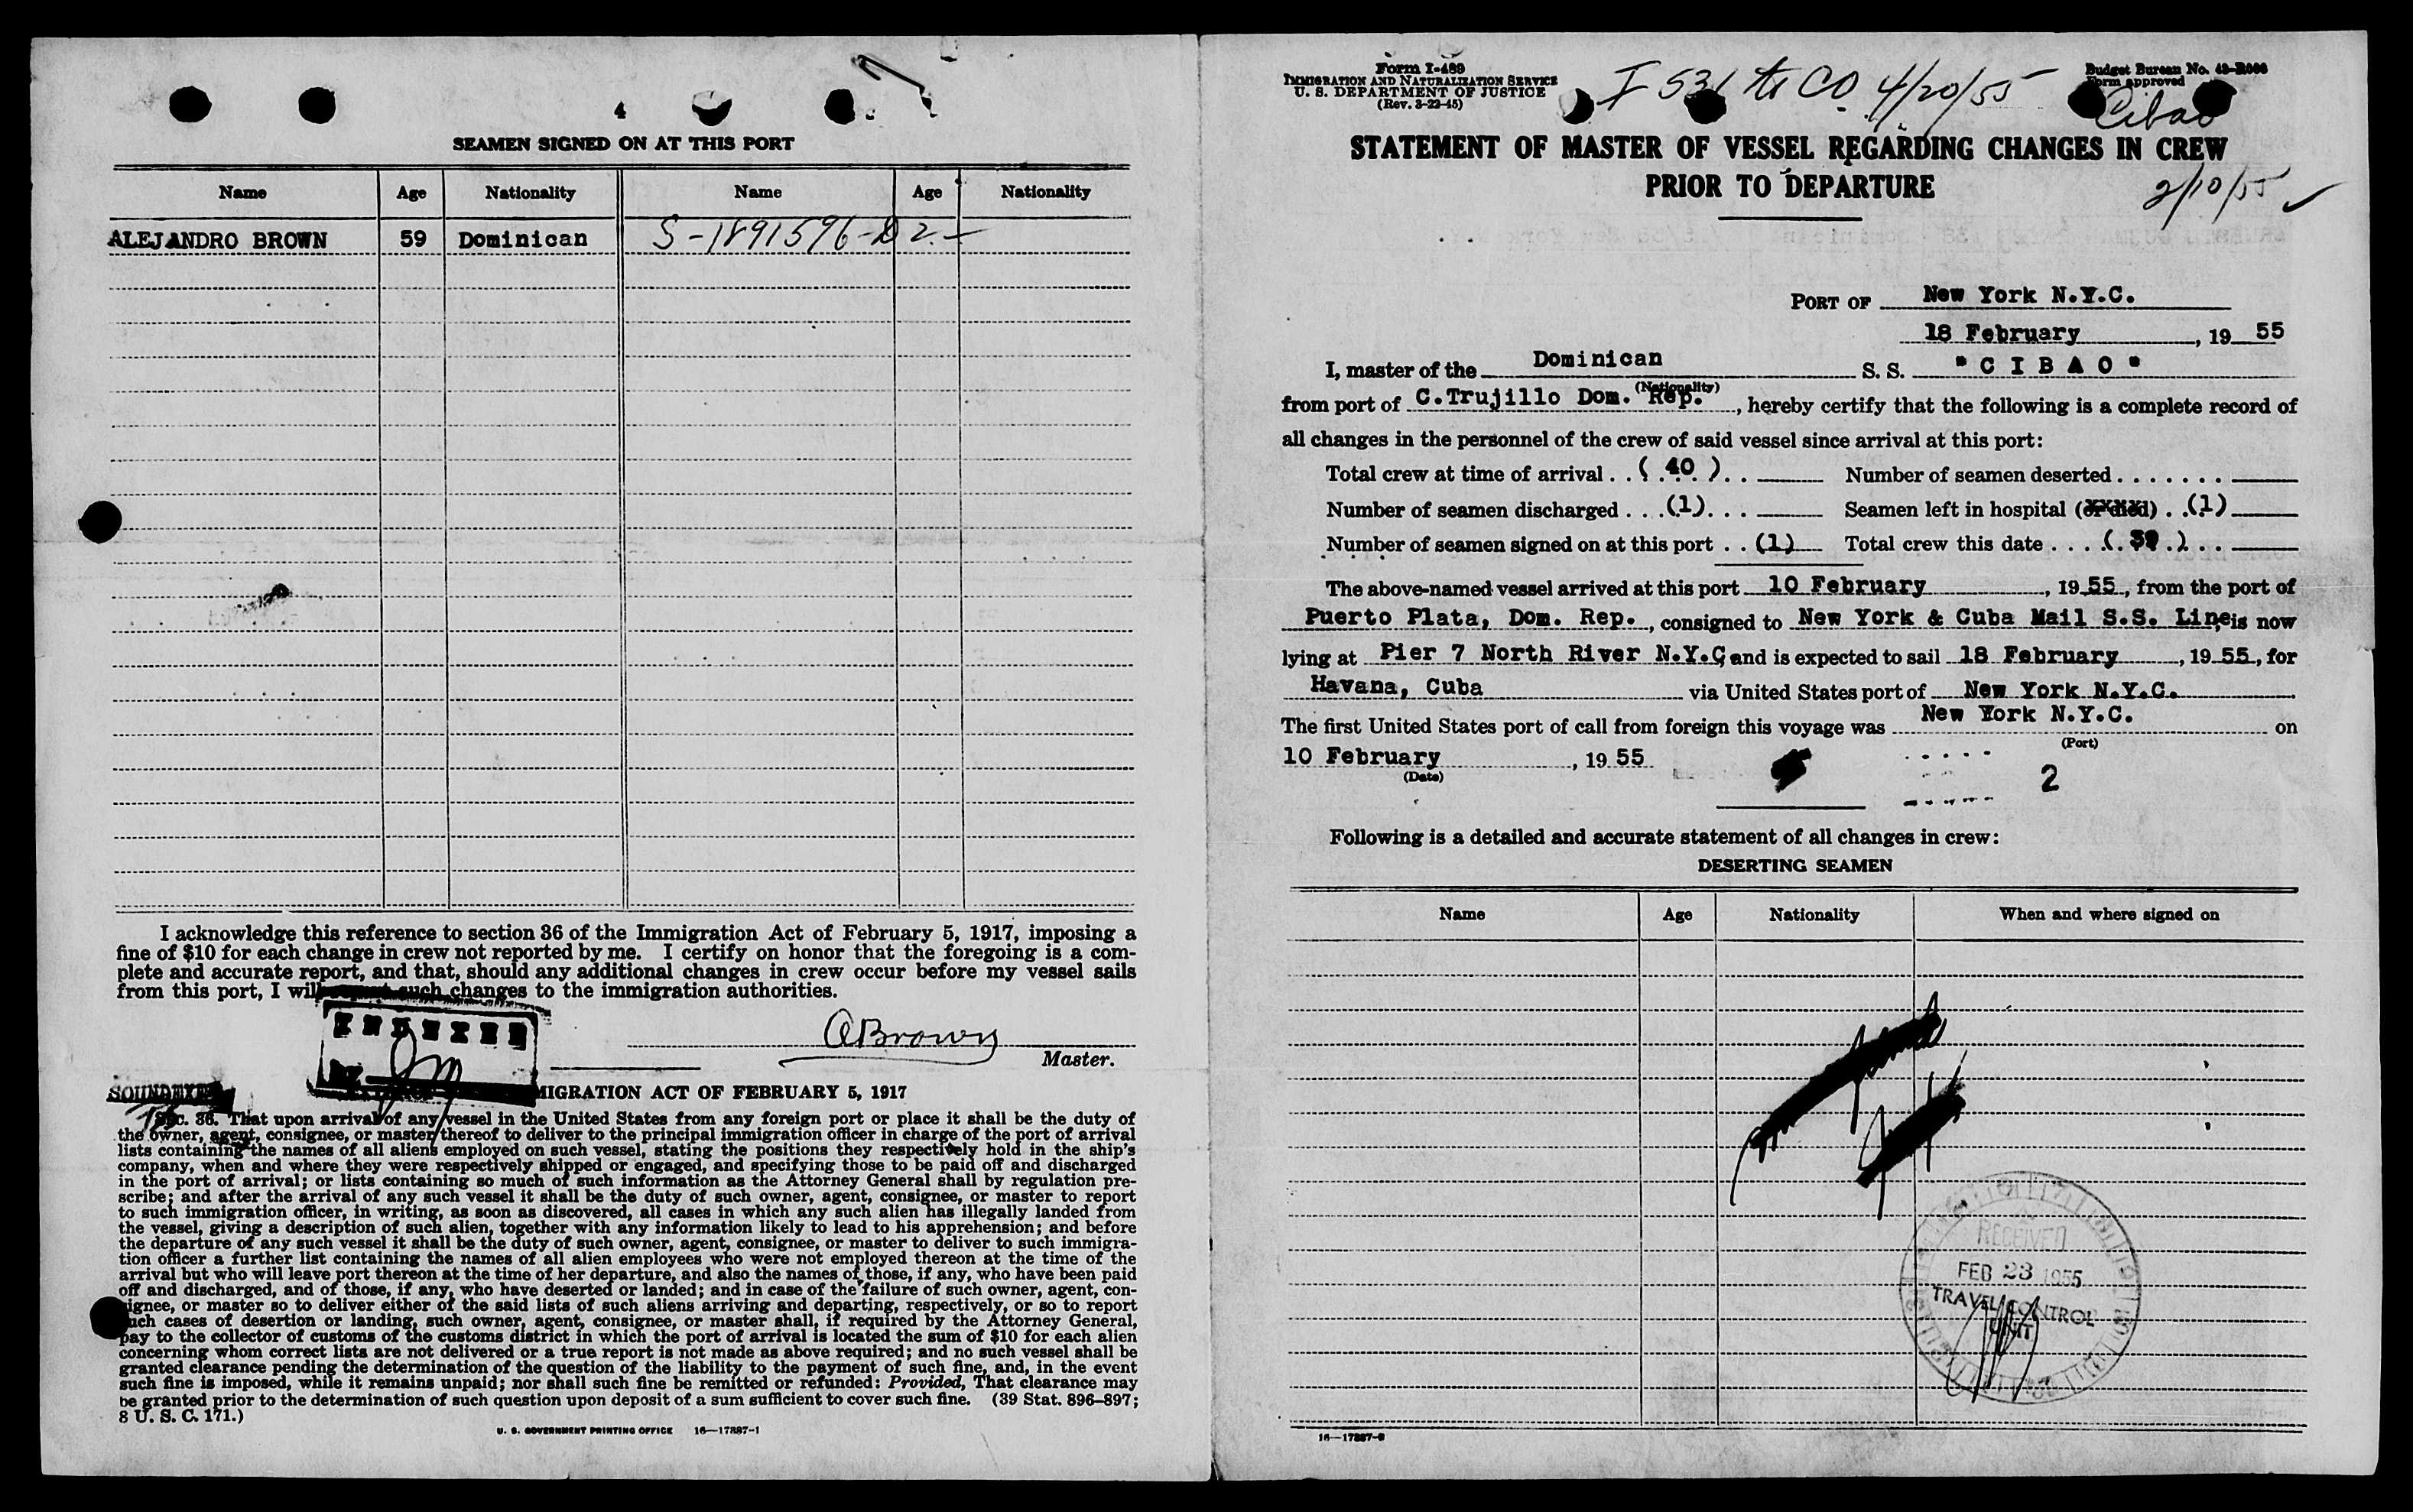 4
SEAMEN SIGNED ON AT THIS PORT
Name Age Nationality Name Age Nationality
ALEJANDRO BROWN 59 Dominican S-1891596-D 2.-
I acknowledge this reference to section 36 of the Immigration Act of February 5, 1917, imposing a
fine of $10 for each change in crew not reported by me. I certify on honor that the foregoing is a com-
plete and accurate report, and that, should any additional changes in crew occur before my vessel sails
from this port, I will such changes to the immigration authorities.
ABrown
Master.
MIGRATION ACT OF FEBRUARY 5, 1917
Sec. 36. That upon arrival of any vessel in the United States from any foreign port or place it shall be the duty of
the owner, agent, consignee, or master thereof to deliver to the principal immigration officer in charge of the port of arrival
lists containing the names of all aliens employed on such vessel, stating the positions they respectively hold in the ship's
company, when and where they were respectively shipped or engaged, and specifying those to be paid off and discharged
in the port of arrival; or lists containing so much of such information as the Attorney General shall by regulation pre-
scribe; and after the arrival of any such vessel it shall be the duty of such owner, agent, consignee, or master to report
to such immigration officer, in writing, as soon as discovered, all cases in which any such alien has illegally landed from
the vessel, giving a description of such alien, together with any information likely to lead to his apprehension; and before
the departure of any such vessel it shall be the duty of such owner, agent, consignee, or master to deliver to such immigra-
tion officer a further list containing the names of all alien employees who were not employed thereon at the time of the
arrival but who will leave port thereon at the time of her departure, and also the names of those, if any, who have been paid
off and discharged, and of those, if any, who have deserted or landed; and in case of the failure of such owner, agent, con-
signee, or master so to deliver either of the said lists of such aliens arriving and departing, respectively, or so to report
such cases of desertion or landing, such owner, agent, consignee, or master shall, if required by the Attorney General,
pay to the collector of customs of the customs district in which the port of arrival is located the sum of $10 for each alien
concerning whom correct lists are not delivered or a true report is not made as above required; and no such vessel shall be
granted clearance pending the determination of the question of the liability to the payment of such fine, and, in the event
such fine is imposed, while it remains unpaid; nor shall such fine be remitted or refunded: Provided, That clearance may
be granted prior to the determination of such question upon deposit of a sum sufficient to cover such fine. (39 Stat. 896–897;
8 U. S. C. 171.)
U. S. GOVERNMENT PRINTING OFFICE 16—17887-1
Form I-489
IMMIGRATION AND NATURALIZATION SERVICE
U. S. DEPARTMENT OF JUSTICE
(Rev. 3-22-45)
I 531 to CO 4/20/55
Budget Bureau No. 43-R066
Form approved
Cibao
STATEMENT OF MASTER OF VESSEL REGARDING CHANGES IN CREW
PRIOR TO DEPARTURE
2/10/55
PORT OF New York N.Y.C.
18 February, 19 55
I, master of the Dominican S. S. "C I B A O"
(Nationality)
from port of C.Trujillo Dom. Rep., hereby certify that the following is a complete record of
all changes in the personnel of the crew of said vessel since arrival at this port:
Total crew at time of arrival . . ( 40 ) . . Number of seamen deserted . . . . . . .
Number of seamen discharged . . . (1) . . . Seamen left in hospital (or died) . . (1)
Number of seamen signed on at this port . . (1) Total crew this date . . . ( 39 ) . .
The above-named vessel arrived at this port 10 February, 19 55, from the port of
Puerto Plata, Dom. Rep., consigned to New York & Cuba Mail S.S. Line, is now
lying at Pier 7 North River N.Y.C and is expected to sail 18 February, 19 55, for
Havana, Cuba via United States port of New York N.Y.C.
The first United States port of call from foreign this voyage was New York N.Y.C. on
(Port)
10 February, 19 55
(Date)
2
Following is a detailed and accurate statement of all changes in crew:
DESERTING SEAMEN
Name Age Nationality When and where signed on
RECEIVED
FEB 23 1955
TRAVEL CONTROL
UNIT